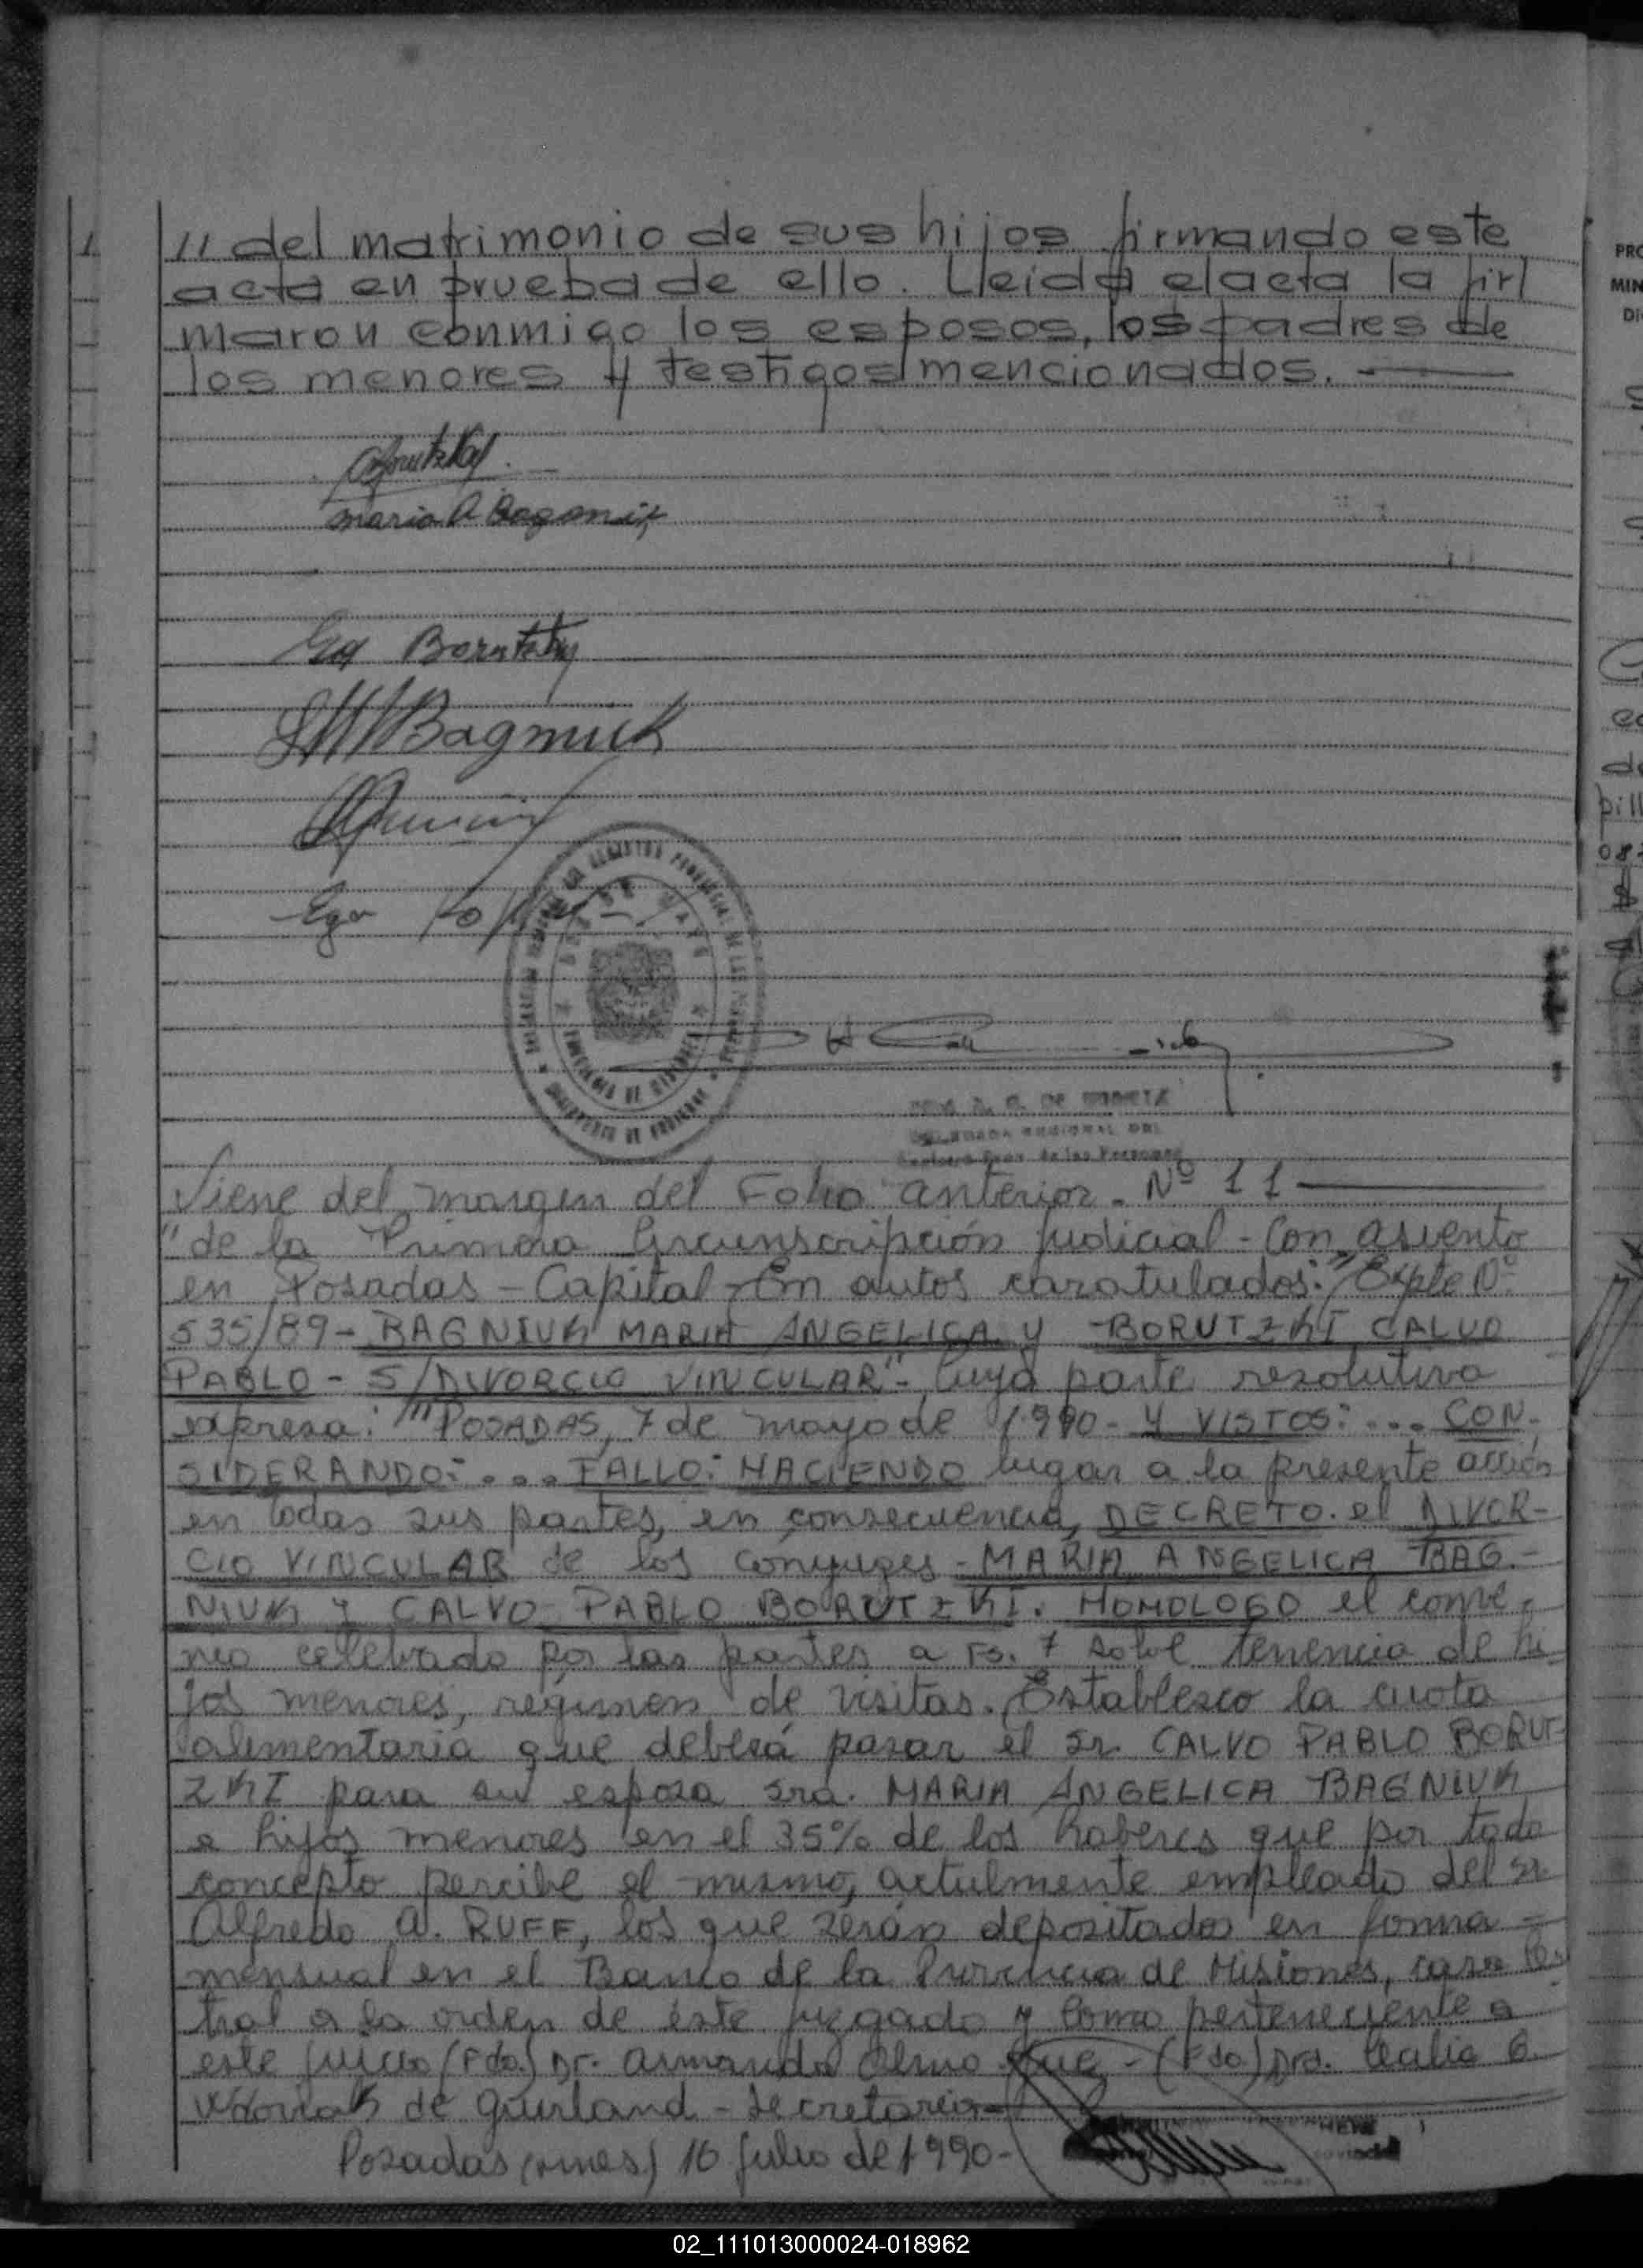 11 del matrimonio de sus hijos firmando este
acta en prueba de ello. Lleida el acta la fir/
maron conmigo los esposos, los padres de
los menores y testigos mencionados. —
Borutzki
maria A Bagniuk
Borutzky
Bagniuk
Viene del margen del Folio anterior. Nº 11 —
"de la Primera Circunscripción Judicial - Con asiento
en Posadas - Capital - En autos caratulados: "Expte Nº
535/89 - BAGNIUK MARIA ANGELICA y BORUTZKI CALVO
PABLO - S/DIVORCIO VINCULAR" - Cuya parte resolutiva
expresa: "POSADAS, 7 de mayo de 1990 - Y VISTOS: ... CON-
SIDERANDO: ... FALLO: HACIENDO lugar a la presente acción
en todas sus partes, en consecuencia, DECRETO. el DIVOR-
CIO VINCULAR de los conyuges - MARIA ANGELICA BAG.-
NIUK y CALVO PABLO BORUTZKI. HOMOLOGO el conve-
nio celebrado por las partes a Fs. 7 sobre tenencia de hi
jos menores, regimen de visitas. Establezco la cuota
alimentaria que deberá pasar el Sr. CALVO PABLO BORUT-
ZKI para su esposa Sra. MARIA ANGELICA BAGNIUK
e hijos menores en el 35% de los haberes que por todo
concepto percibe el mismo, actulmente empleado del Sr
Alfredo A. RUFF, los que serán depositados en forma -
mensual en el Banco de la Provincia de Misiones, casa Cen
tral a la orden de éste juzgado y como perteneciente a
este juicio (Fdo.) Dr. Armando Olmo - Juez - (Fdo) Dra.
de Guirland - Secretaria -
Posadas (mnes) 16 Julio de 1990 -
02_111013000024-018962